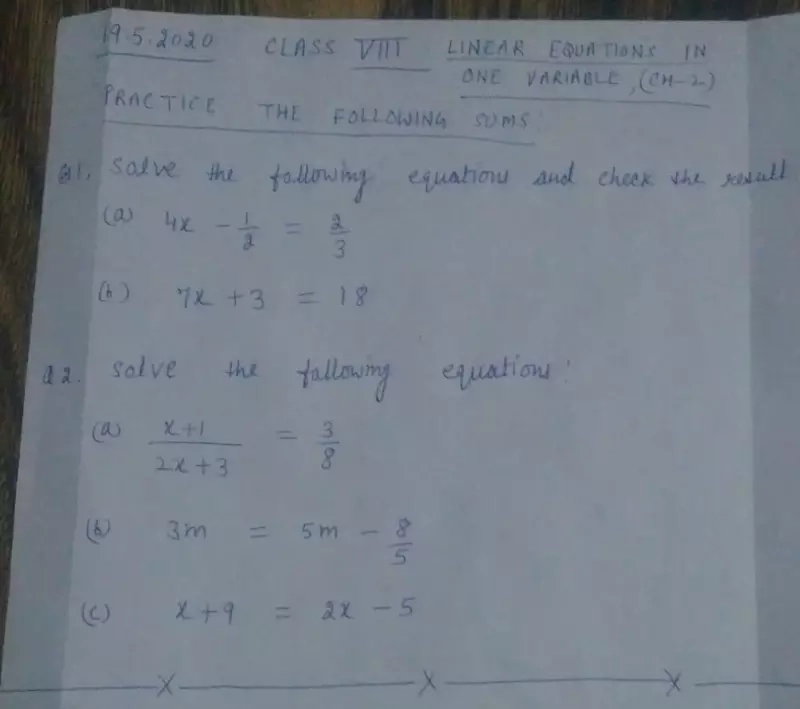 19.5.2020 CLASS VIII LINEAR EQUATIONS IN
ONE VARIABLE, (CH-2)
PRACTICE THE FOLLOWING SUMS:
Q1. Solve the following equations and check the result
(a) 4x - 1/2 = 2/3
(b) 7x + 3 = 18
Q2. Solve the following equations:
(a) x+1/2x+3 = 3/8
(b) 3m = 5m - 8/5
(c) x+9 = 2x - 5